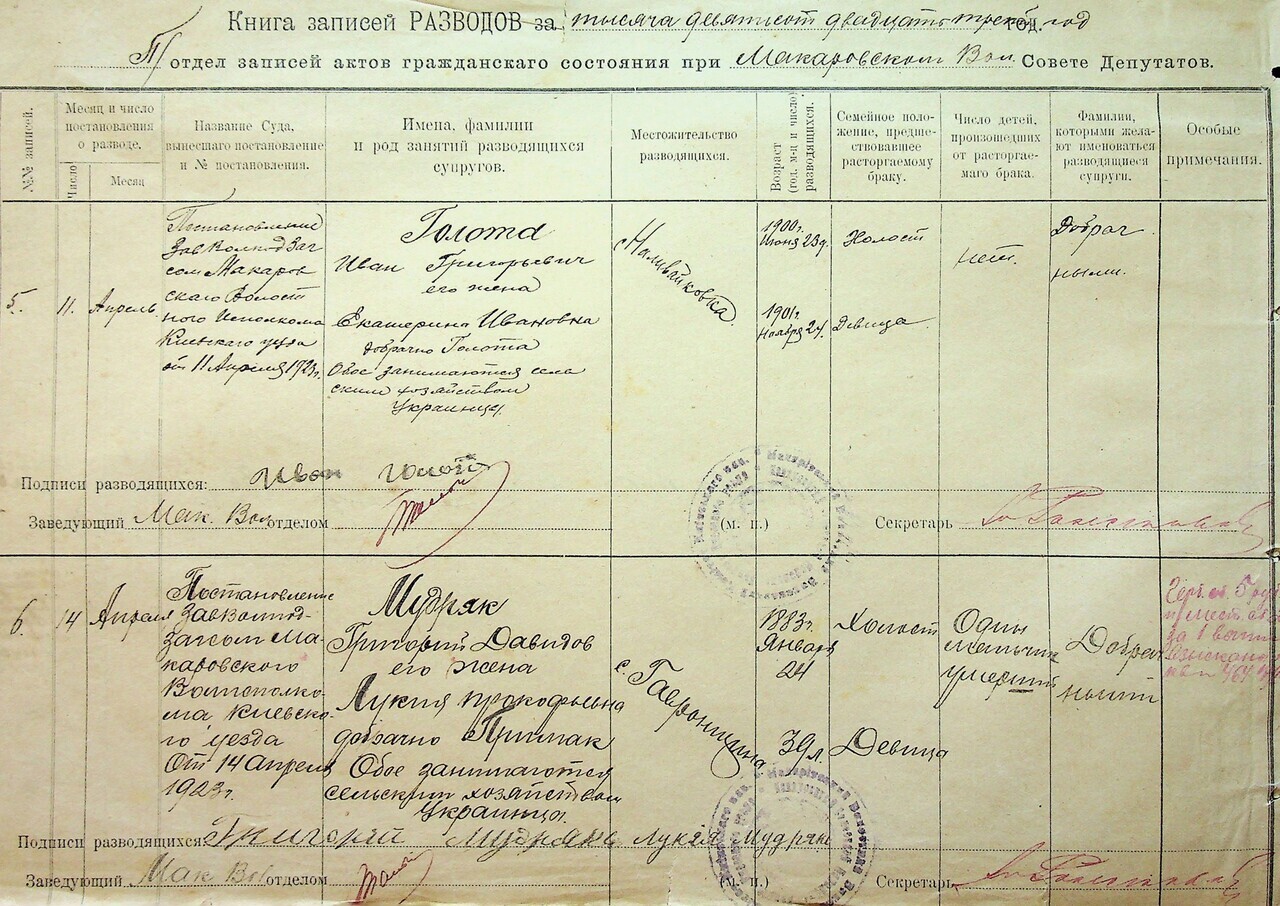 Книга записей РАЗВОДОВ за тысяча девятисот двадцать третий год. год
П/отдел записей актов гражданскаго состояния при Макаровском Вол. Совете Депутатов.
№№ записей.
Месяц и число постановления о разводе.
Число
Месяц
Название Суда, вынесшаго постановление и № постановления.
Имена, фамилии и род занятий разводящихся супругов.
Местожительство разводящихся.
Возраст (год, м-ц и число) разводящихся.
Семейное поло-
жение, предше-
ствовавшее
расторгаемому
браку.
Число детей,
происшедших
от расторгае-
маго брака.
Фамилии,
которыми жела-
ют именоваться
разводящиеся
супруги.
Особые
примечания.
5.
11.
Апрель
Постановление
Зав Волподзаг
сом Макаров
скаго Волост
ного Исполкома
Киевскаго уезда
от 11 Апреля 1923г.
Голота
Иван Григорьевич
его жена
Екатерина Ивановна
добрачно Голота
Обое занимаются сель
ским хозяйством
Украинцы.
с Наливайковка.
1900г.
Июня 23д.
1901г.
Ноября 24.
Холост
Девица
нет.
Добрач
ными.
Подписи разводящихся: Иван Голота
Заведующий Мак. Вол отделом
(м. п.)
Секретарь
6.
14
Апреля
Постановление
Завволпод-
загсом Ма-
каровского
Волисполко-
ма Киевско-
го уезда
От 14 апреля
1923г.
Мудряк
Григорий Давидов
его жена
Лукия Прокофьевна
добрачно Примак
Обое занимаются
сельским хозяйством
Украинцы.
с. Гавронщина
1883г.
Января
24
39 л.
Холост
Девица
Один
мальчик
умерший
Добрач
ный
Подписи разводящихся: Григорий Мудрякъ Лукія Мудрякъ
Заведующий Мак Вол отделом
(м. п.)
Секретарь